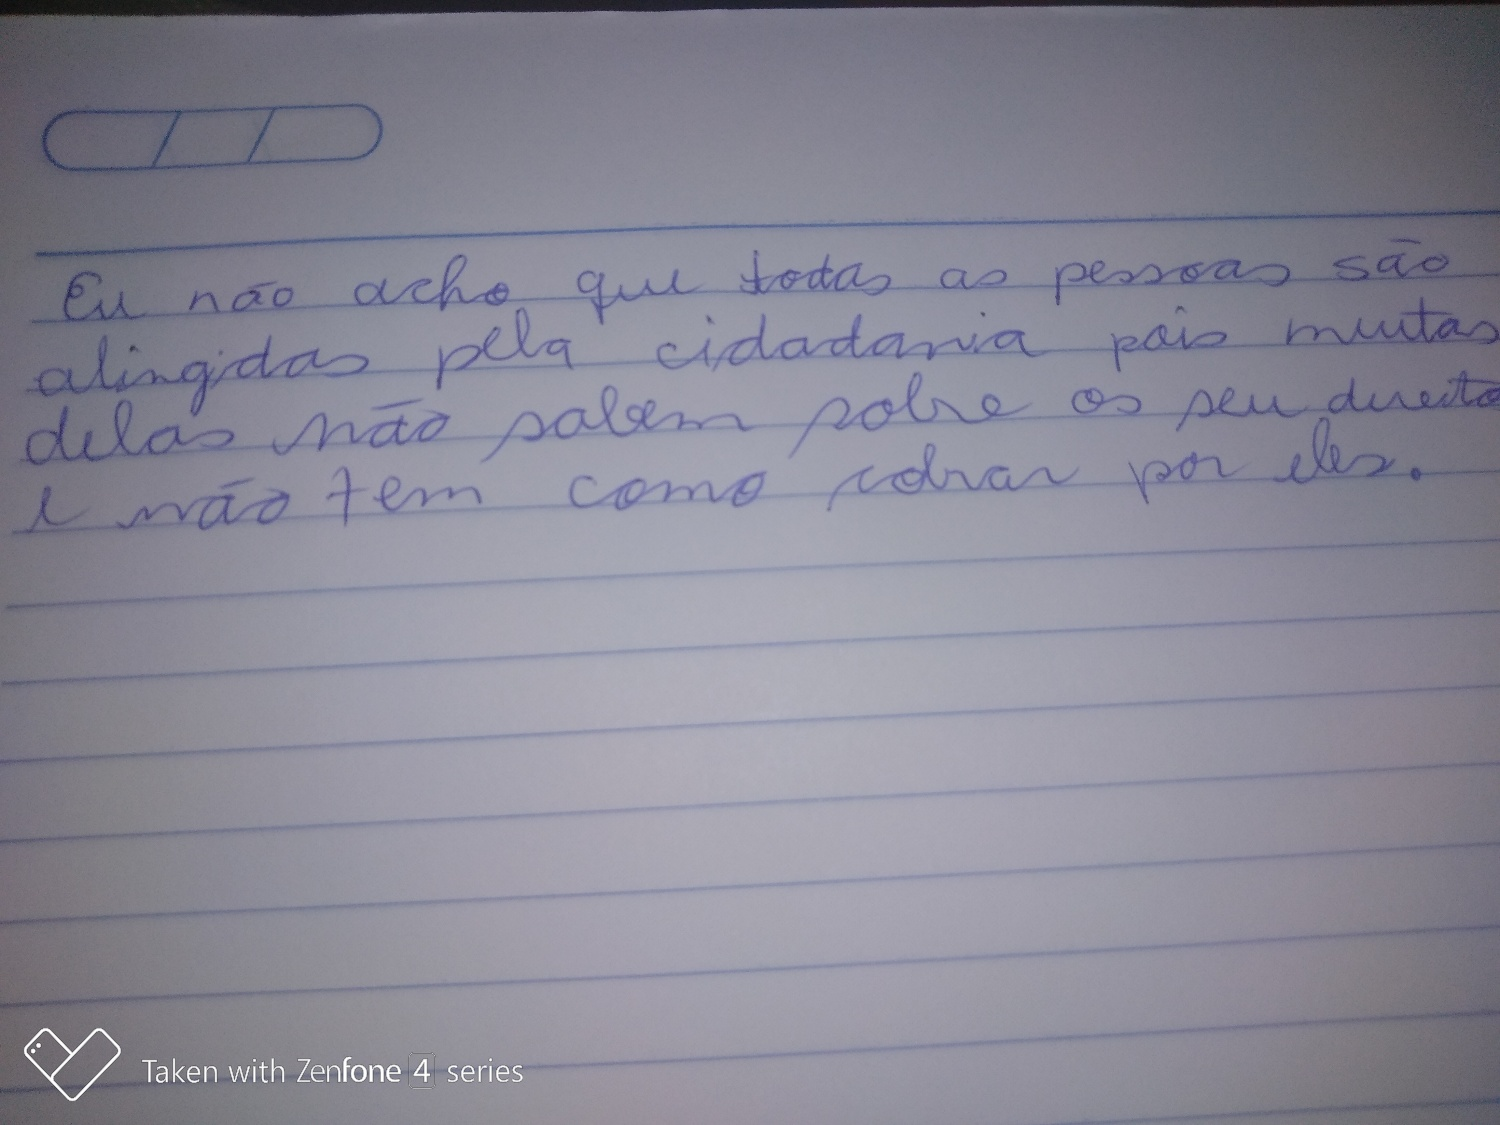 Eu não acho que todas as pessoas são
atingidas pela cidadania pois muitas
delas não sabem sobre os seu direito
e não tem como cobrar por eles.
Taken with Zenfone 4 series